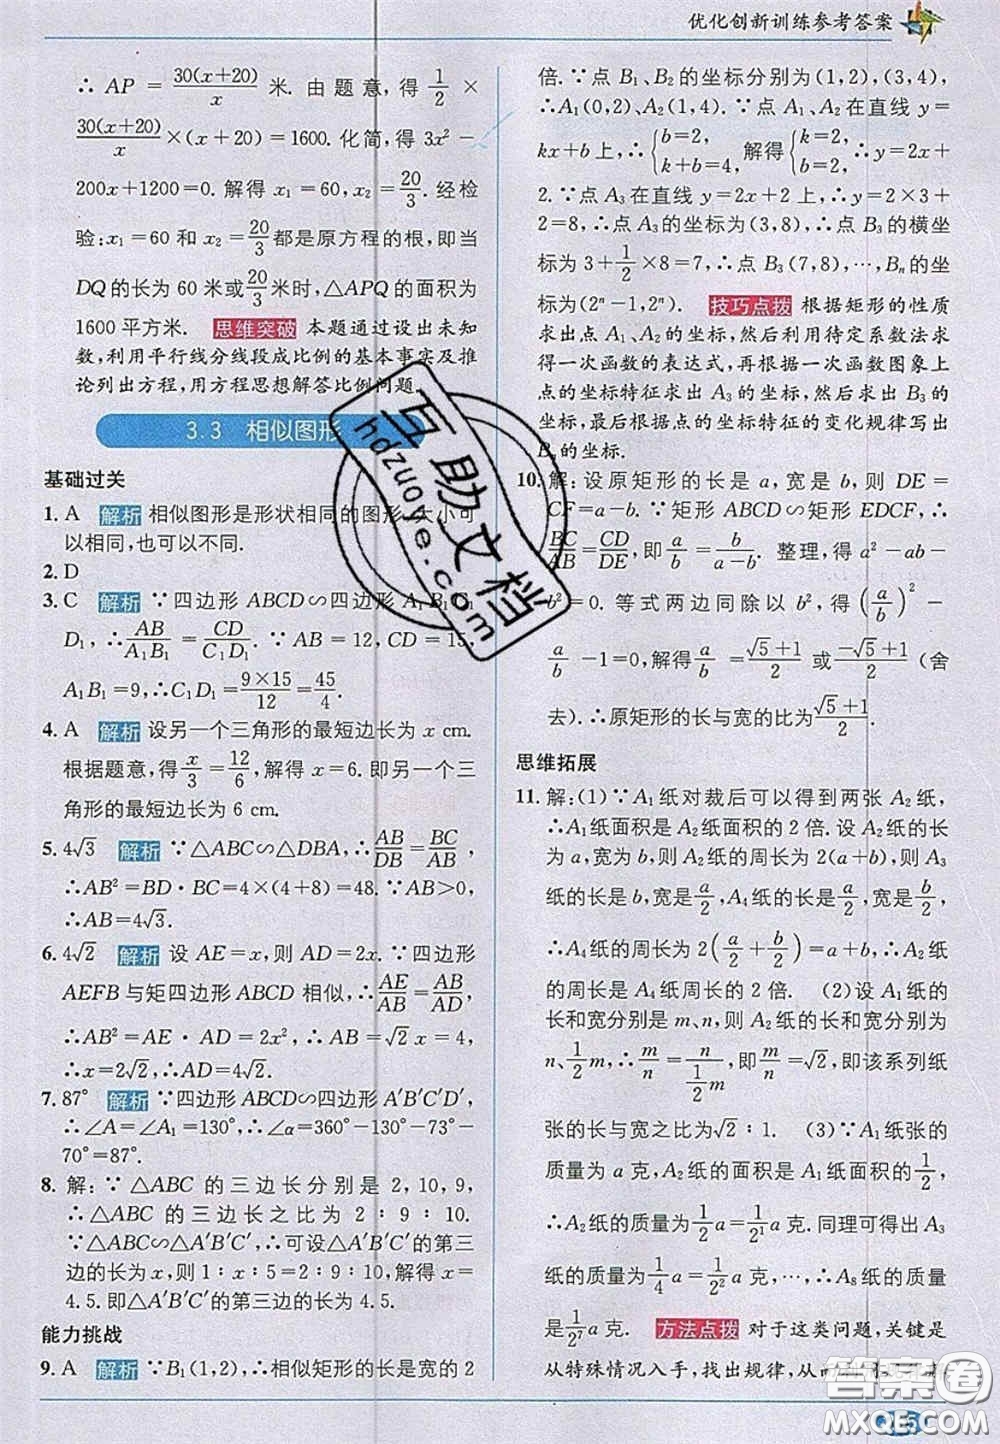 优化创新训练参考答案
∴ AP = 30(x+20)/x 米. 由题意,得 1/2 ×
30(x+20)/x ×(x+20)=1600. 化简,得 3x²-
200x+1200=0. 解得 x₁=60, x₂=20/3. 经检
验:x₁=60 和 x₂=20/3 都是原方程的根,即当
DQ 的长为 60 米或 20/3 米时,△APQ 的面积为
1600 平方米. 思维突破 本题通过设出未知
数,利用平行线分线段成比例的基本事实及推
论列出方程,用方程思想解答比例问题.
3.3 相似图形
基础过关
1. A 解析 相似图形是形状相同的图形,大小可
以相同,也可以不同.
2. D
3. C 解析 ∵四边形 ABCD∽四边形 A₁B₁C₁
D₁, ∴AB/A₁B₁=CD/C₁D₁. ∵AB=12, CD=15,
A₁B₁=9, ∴C₁D₁=9×15/12=45/4.
4. A 解析 设另一个三角形的最短边长为 x cm.
根据题意,得 x/3=12/6, 解得 x=6. 即另一个三
角形的最短边长为 6 cm.
5. 4√3 解析 ∵△ABC∽△DBA, ∴AB/DB=BC/AB,
∴AB²=BD·BC=4×(4+8)=48. ∵AB>0,
∴AB=4√3.
6. 4√2 解析 设 AE=x, 则 AD=2x. ∵四边形
AEFB 与矩四边形 ABCD 相似, ∴AE/AB=AB/AD,
∴AB²=AE·AD=2x², ∴AB=√2x=4,
∴x=2√2, ∴AD=4√2.
7. 87° 解析 ∵四边形 ABCD∽四边形 A′B′C′D′,
∴∠A=∠A₁=130°, ∴∠α=360°-130°-73°-
70°=87°.
8. 解: ∵△ABC 的三边长分别是 2, 10, 9,
∴△ABC 的三边长之比为 2∶9∶10.
∵△ABC∽△A′B′C′, ∴可设△A′B′C′的第三
边的长为 x, 则 1∶x∶5=2∶9∶10, 解得 x=
4.5. 即△A′B′C′的第三边的长为 4.5.
能力挑战
9. A 解析 ∵B₁(1,2), ∴相似矩形的长是宽的 2
倍. ∵点 B₁、B₂ 的坐标分别为(1,2),(3,4),
∴A₁(0,2), A₂(1,4). ∵点 A₁、A₂ 在直线 y=
kx+b 上, ∴{b=2, k+b=4, 解得{b=2, k=2, ∴y=2x+
2. ∵点 A₃ 在直线 y=2x+2 上, ∴y=2×3+
2=8, ∴点 A₃ 的坐标为(3,8), ∴点 B₃ 的横坐
标为 3+1/2×8=7, ∴点 B₃(7,8), …, Bₙ 的坐
标为(2ⁿ-1, 2ⁿ). 技巧点拨 根据矩形的性质
求出点 A₁、A₂ 的坐标,然后利用待定系数法求
得一次函数的表达式,再根据一次函数图象上
点的坐标特征求出 A₃ 的坐标,然后求出 B₃ 的
坐标,最后根据点的坐标特征的变化规律写出
Bₙ 的坐标.
10. 解: 设原矩形的长是 a, 宽为 b, 则 DE=
CF=a-b. ∵矩形 ABCD∽矩形 EDCF, ∴
BC/CD=CD/DE, 即 a/b=b/(a-b). 整理,得 a²-ab-
b²=0. 等式两边同除以 b², 得 (a/b)²-
a/b-1=0, 解得 a/b=(√5+1)/2 或 (-√5+1)/2 (舍
去). ∴原矩形的长与宽的比为 (√5+1)/2.
思维拓展
11. 解:(1)∵A₁ 纸对裁后可以得到两张 A₂ 纸,
∴A₁ 纸面积是 A₂ 纸面积的 2 倍. 设 A₂ 纸的长
为 a, 宽为 b, 则 A₂ 纸的周长为 2(a+b), A₃
纸的长是 b, 宽是 a/2, A₄ 纸的长是 a/2, 宽是 b/2,
∴A₄ 纸的周长为 2(a/2+b/2)=a+b, ∴A₂ 纸
的周长是 A₄ 纸周长的 2 倍. (2)设 A₁ 纸的
长和宽分别是 m、n, 则 A₂ 纸的长和宽分别为
n、1/2 m, ∴m/n=n/(1/2 m), 即 m/n=√2, 即该系列纸
张的长与宽之比为√2∶1. (3)∵A₁ 纸张的
质量为 a 克, A₂ 纸的面积是 A₁ 纸面积的 1/2,
∴A₂ 纸的质量为 1/2 a=1/2¹ a 克. 同理可得出 A₃
纸的质量为 1/4 a=1/2² a 克, …, ∴A₈ 纸的质量
是 1/2⁷ a 克. 方法点拨 对于这类问题,关键是
从特殊情况入手,找出规律,从而
互助文档
hdzuoye.com
答案圈
MXQE.COM